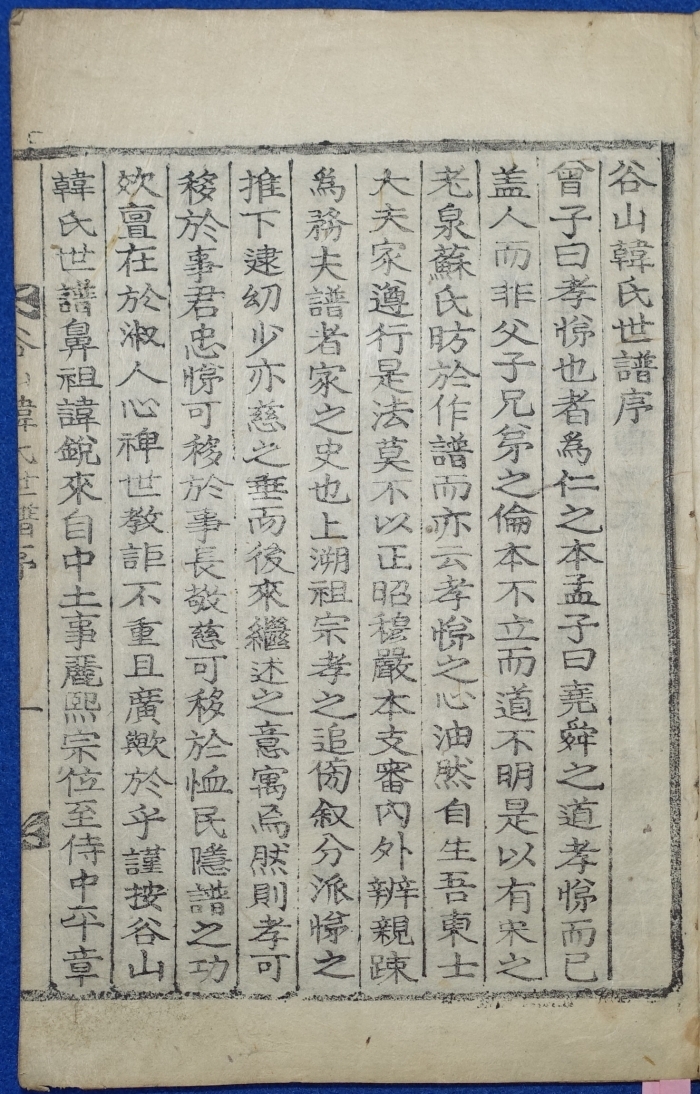 谷山韓氏世譜序
曾子曰孝悌也者爲仁之本孟子曰堯舜之道孝悌而已
盖人而非父子兄弟之倫本不立而道不明是以有宋之
老泉蘇氏昉於作譜而亦云孝悌之心油然自生吾東士
大夫家遵行是法莫不以正昭穆嚴本支審內外辨親踈
爲務夫譜者家之史也上溯祖宗孝之追傍叙分派悌之
推下逮幼少亦慈之垂而後來繼述之意寓焉然則孝可
移於事君忠悌可移於事長敬慈可移於恤民隱譜之功
效亶在於淑人心裨世敎詎不重且廣歟於乎謹按谷山
韓氏世譜鼻祖諱銳來自中土事麗熙宗位至侍中平章
谷山韓氏世譜序
一